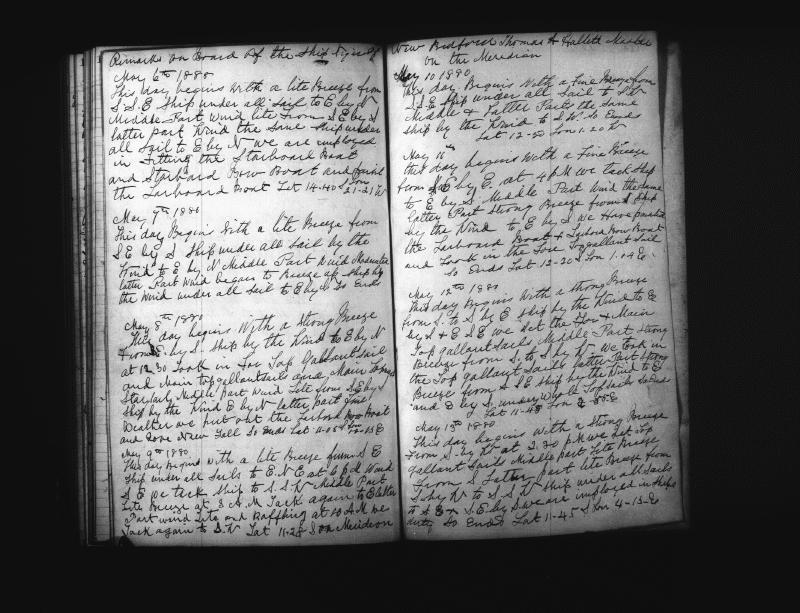 Remarks on Board of the Ship
May 6th 1880
This day begins with a lite Breeze from
S.S.E Ship under all Sail to E by N
Middle Part Wind lite From S E by S
latter part Wind the Same Ship under
all Sail to E by N we are employed
in Fitting the Starboard Boat
and Starbord Bow Boat and
the Larboard Boat Lat 14-40 S Lon 21-21 W
May 7th 1880
This day Begins With a lite Breeze from
S E by S Ship under all Sail by the
Wind to E by N Middle Part Wind Moderate
latter Part Wind began to Breeze up Ship by
the Wind under all Sail to E by N So Ends
May 8th 1880
This day begins With a Strong Breeze
From S E by S Ship by the Wind to E by N
at 12.30 Took in Fore Top Gallant Sail
and Main topgallantsails and Main
Middle part Wind Lite from S E by S
Ship by the Wind E by N latter part Fine
Weather we put out the Larbord Boat
and New So Ends Lat 11-05
May 9th 1880
This day begins with a lite Breeze from S E
Ship under all Sails to E.N E at 6 P M Wind
S E we tack Ship to S.S. W Middle Part
Lite Breeze at 3 A.M Tack again to E latter
Part wind Lite and Baffling at 10 A.M we
Tack again to S.W Lat 11-28 S on Meridian
New Bedford Thomas H Hallett Master
on the Meridian
May 10 1880
This day Begins With a Fine Breeze from
S.S.E Ship under all Sail to S W
Middle & Latter Parts the Same
Ship by the Wind to S.W. So Ends
Lat 12-50 Lon 1.20 W
May 11th
this day begins With a Fine Breeze
from S E by E. at 4 P M we tack Ship
to E by S. Middle Part Wind the Same
Latter Part Strong Breeze from S Ship
by the Wind to E by S We Have painted
the Larboard Boat & Bow Boat
and Took in the Fore Topgallant Sail
So Ends Lat 12-20 S Lon 1.04 E.
May 12th 1880
this day Begins With a Strong Breeze
from S. to S by E Ship by the Wind to E
by S & E S E we Set the For & Main
Top gallant Sails Middle Part Strong
Breeze from S. to S by W We Took in
the Top gallant Sails latter Part Strong
Breeze from S S E Ship by the Wind to E
and E by S. under Whole Topsails So Ends
Lat 11-48 Lon
May 13th 1880
This day begins with a Strong Breeze
From S- by W at 2.30 P M we Set Top
gallant Sails Middle part Lite Breeze
From S Latter part lite Breeze from
S by W to S S W Ship under all Sails
to S.E by S we are imployed in Ships
duty So Ends Lat 11-45 S Lon 4-13-E